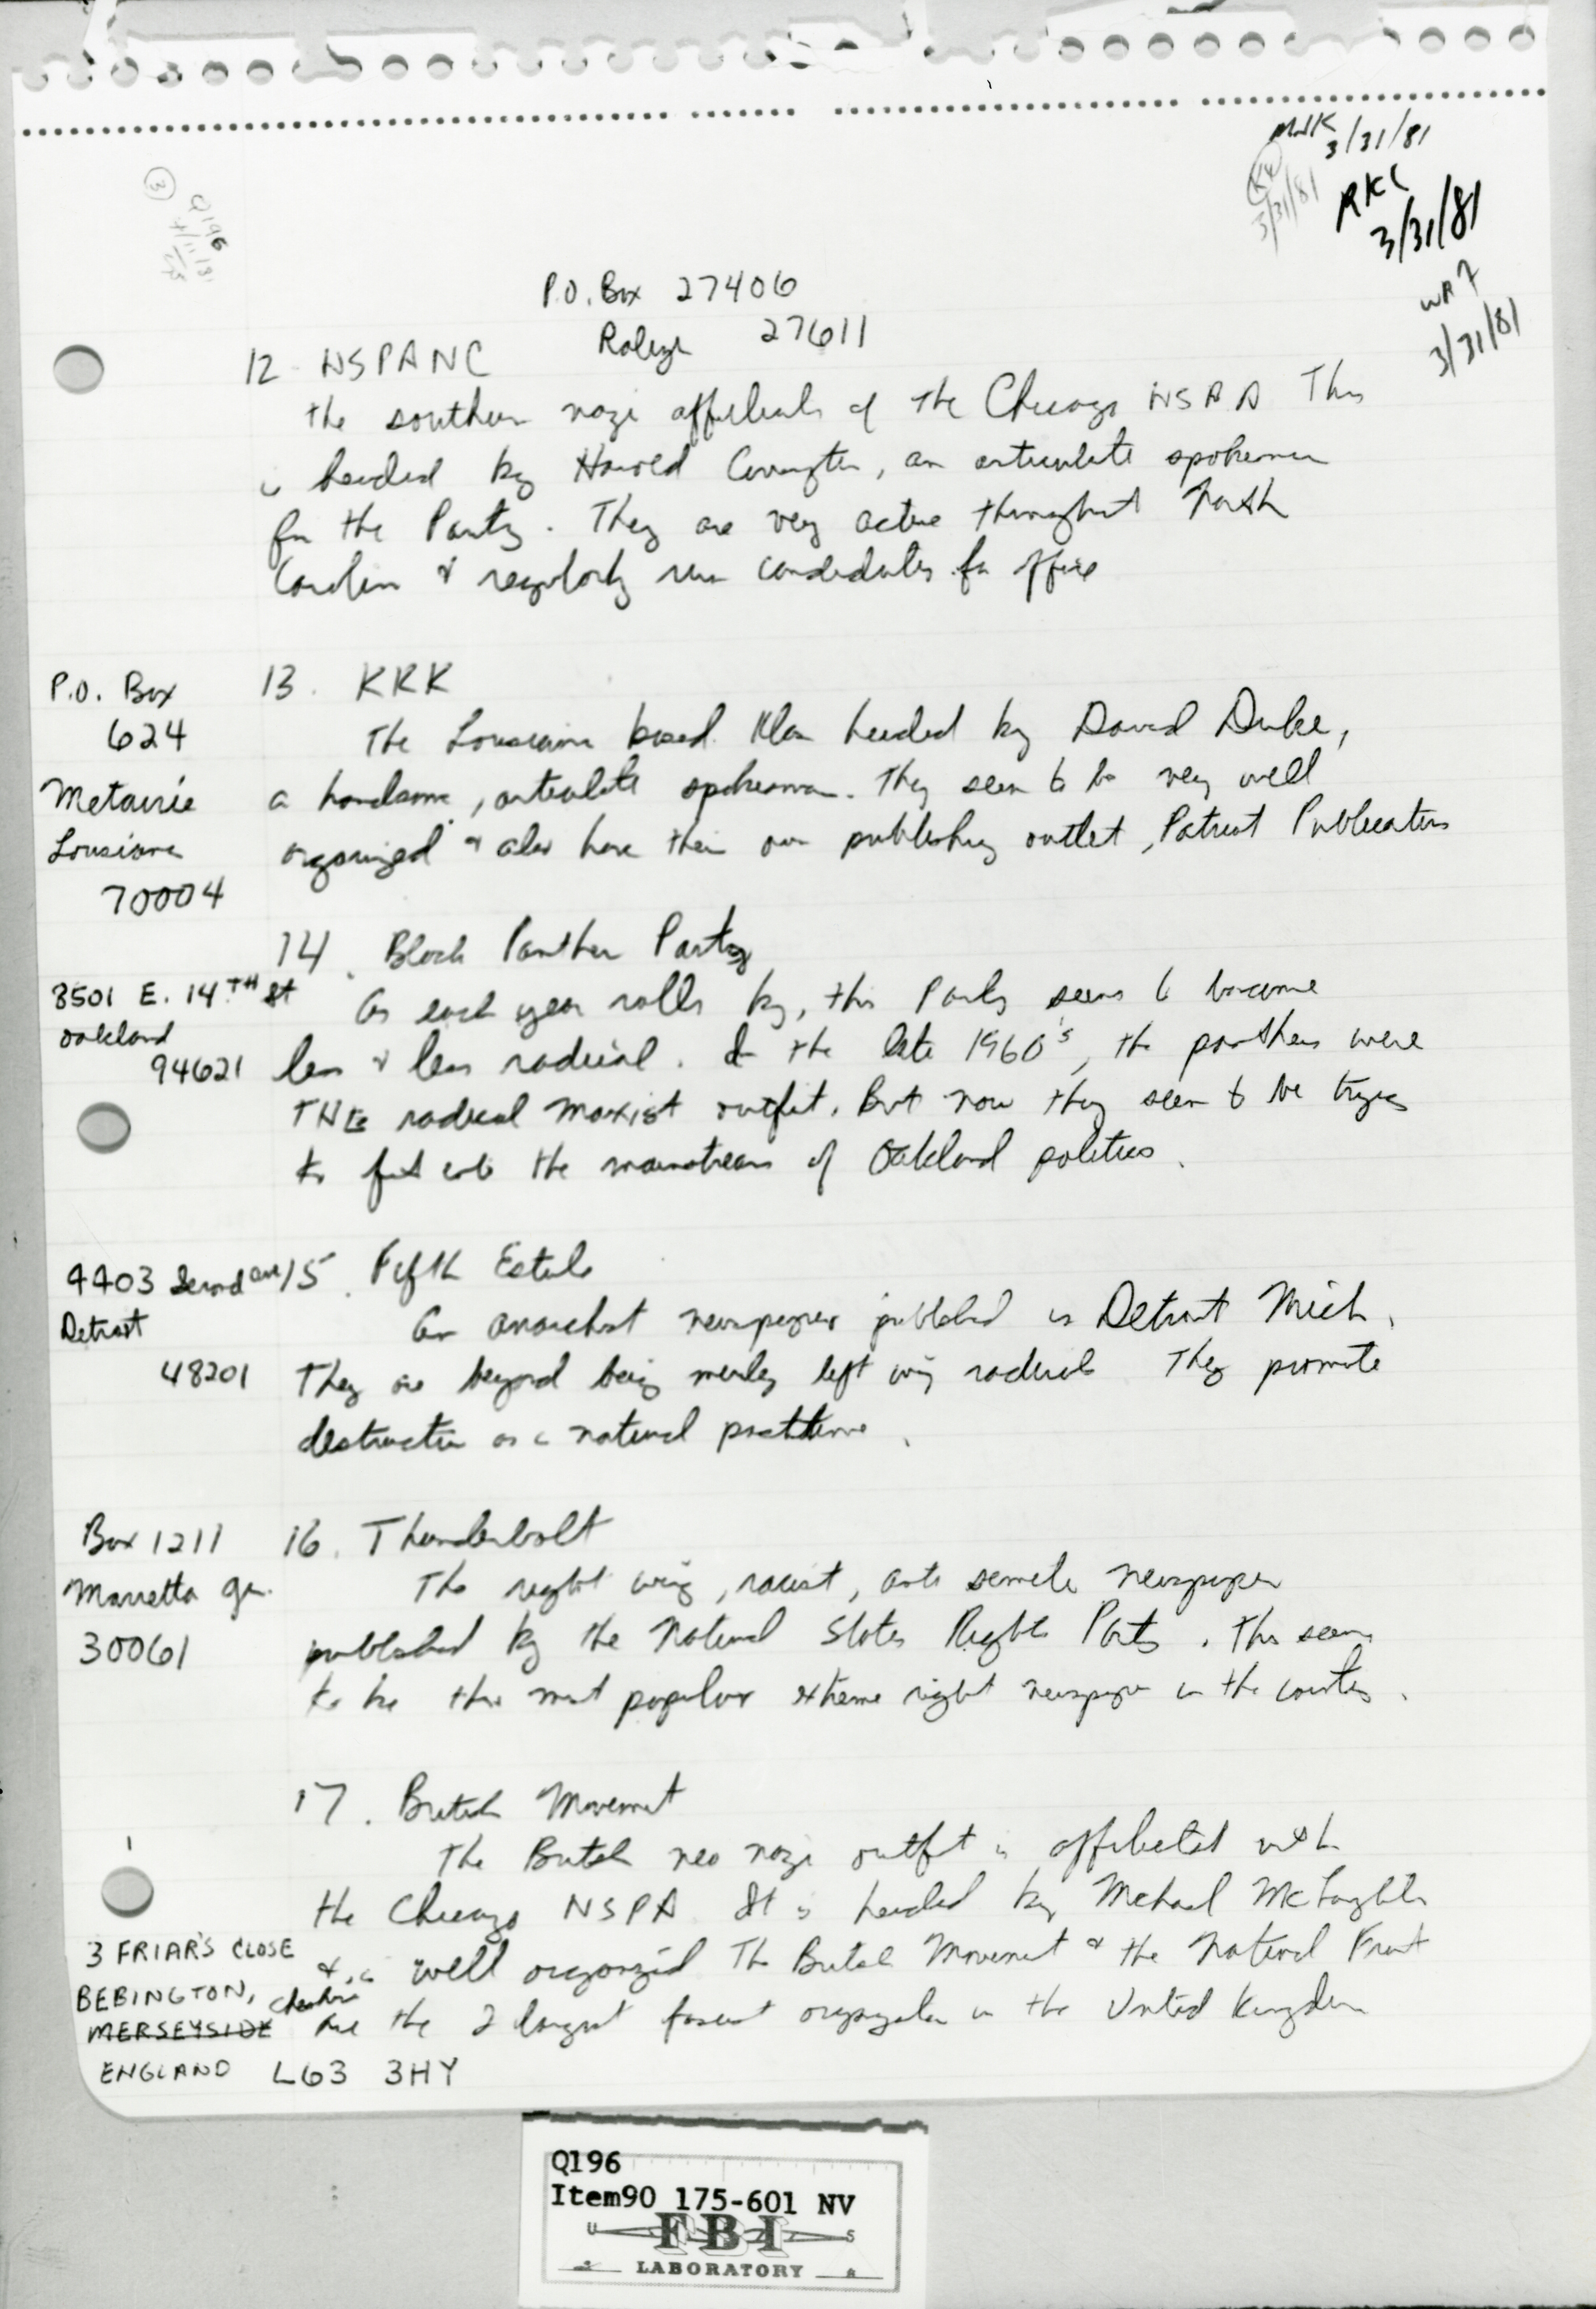 MWK
3/31/81
3/31/81
RKC
3/31/81
3
Q196
3/31/81
P.O. Box 27406
Raleigh 27611
12 NSPANC
The southern nazi affiliate of the Chicago NSPA This
is headed by Harold Covington, an articulate spokesman
for the Party. They are very active throughout North
Carolin & regularly run candidates for office
P.O. Box
624
Metairie
Lousiana
70004
13. KKK
The Lousiana based Klan headed by David Duke,
a handsome, articulate spokesman. They seem to be very well
organized & also have their own publishing outlet, Patriot Publications
8501 E. 14TH St
Oakland
94621
14. Black Panther Party
As each year rolls by, this Party seems to become
less & less radical. In the late 1960's, the panthers were
THE radical marxist outfit. But now they seem to be trying
to fit into the mainstream of Oakland politics.
4403 Second ave
Detroit
48201
15. Fifth Estate
An anarchist newspaper published in Detroit Mich.
They are beyond being merely left wing radicals They promote
destruction as a natural
Box 1211
Marietta ga.
30061
16. Thunderbolt
The right wing, racist, anti semite newspaper
published by the National States Rights Party. This seems
to be the most popular extreme right newspaper in the country.
17. British Movement
The British neo nazi outfit is affiliated with
the Chicago NSPA It is headed by Michael McLaughlin
& is well organized The British Movement & the National Front
are the 2 largest fascist organization in the United Kingdom
3 FRIAR'S CLOSE
BEBINGTON, Cheshire
MERSEYSIDE
ENGLAND L63 3HY
Q196
Item90 175-601 NV
U S
FBI
LABORATORY